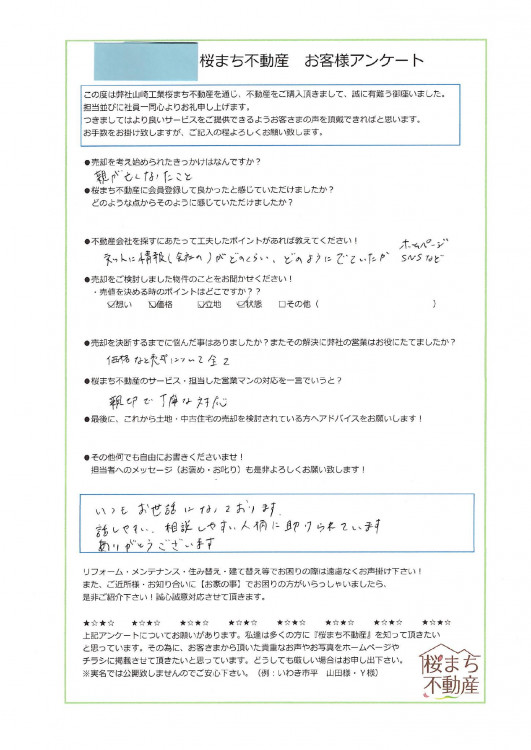 桜まち不動産 お客様アンケート
この度は弊社山崎工業桜まち不動産を通じ、不動産をご購入頂きまして、誠に有難う御座いました。
担当並びに社員一同心よりお礼申し上げます。
つきましてはより良いサービスをご提供できるようお客さまの声を頂戴できればと思います。
お手数をお掛け致しますが、ご記入の程よろしくお願い致します。
●売却を考え始められたきっかけはなんですか？
親が亡くなったこと
●桜まち不動産に会員登録して良かったと感じていただけましたか？
どのような点からそのように感じていただけましたか？
●不動産会社を探すにあたって工夫したポイントがあれば教えてください！
ネットに情報(会社の)がどのくらい、どのようにでていたか ホームページ
SNSなど
●売却をご検討しました物件のことをお聞かせください！
・売値を決める時のポイントはどこですか？？
☑想い ☑価格 ☑立地 ☑状態 □その他（ ）
●売却を決断するまでに悩んだ事はありましたか？またその解決に弊社の営業はお役にたてましたか？
価格など売却について全て
●桜まち不動産のサービス・担当した営業マンの対応を一言でいうと？
親切で丁寧な対応
●最後に、これから土地・中古住宅の売却を検討されている方へアドバイスをお願いします！
●その他何でも自由にお書きくださいませ！
担当者へのメッセージ（お褒め・お叱り）も是非よろしくお願い致します！
いつもお世話になっております。
話しやすい、相談しやすい人柄に助けられています
ありがとうございます
リフォーム・メンテナンス・住み替え・建て替え等でお困りの際は遠慮なくお声掛け下さい！
また、ご近所様・お知り合いに【お家の事】でお困りの方がいらっしゃいましたら、
是非ご紹介下さい！誠心誠意対応させて頂きます。
★☆★☆ ★☆★☆ ★☆★☆ ★☆★☆ ★☆★☆ ★☆★☆ ★☆★☆ ★☆★☆
上記アンケートについてお願いがあります。私達は多くの方に『桜まち不動産』を知って頂きたい
と思っています。その為に、お客さまから頂いた貴重なお声やお写真をホームページや
チラシに掲載させて頂きたいと思っています。どうしても厳しい場合はお申し出下さい。
※実名では公開致しませんのでご安心下さい。（例：いわき市平 山田様・Y様）
桜まち
不動産